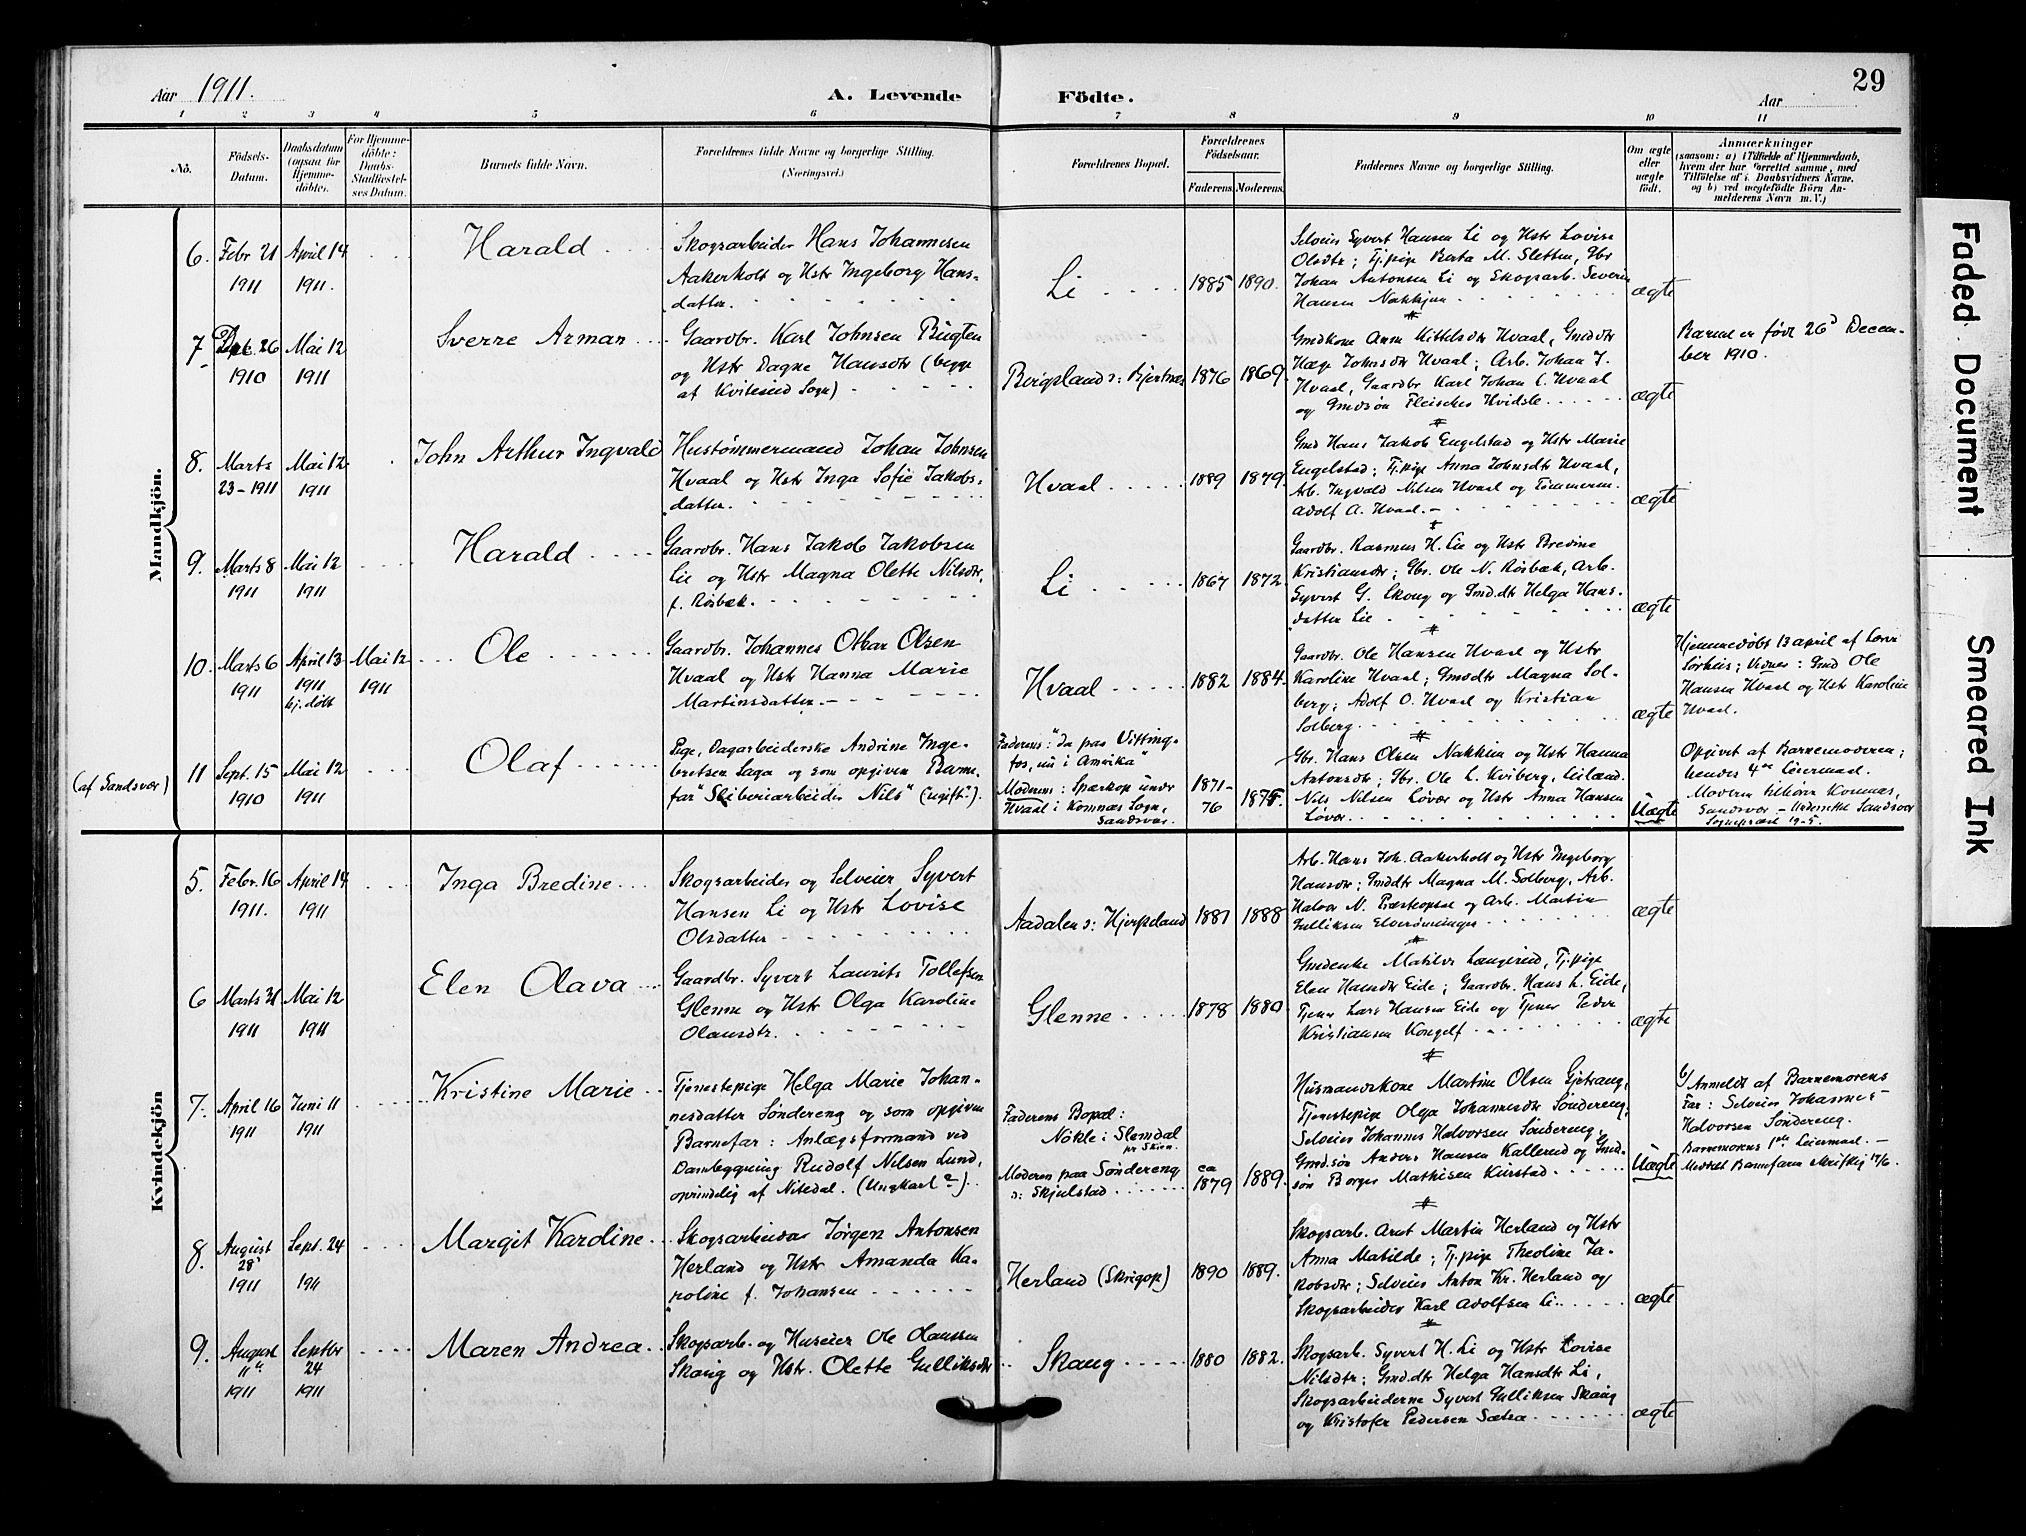 29
Aar 1911.
A. Levende Födte.
Aar
1 2 3 4 5 6 7 8 9 10 11
No.
Födsels-Datum.
Daabsdatum (ogsaa for Hjemme-döbte).
For Hjemme-döbte: Daabs-Stadfæstel-ses Datum.
Barnets fulde Navn.
Forældrenes fulde Navne og borgerlige Stilling. (Næringsvei.)
Forældrenes Bopæl.
Forældrenes Födselsaar.
Faderens. Moderens.
Faddernes Navne og borgerlige Stilling.
Om ægte eller uægte födt.
Anmærkninger
(saasom: a) i Tilfælde af Hjemmedaab,
hvem der har forrettet samme, med
Tilföielse af i. Daabsvidners Navne,
og b) ved uægtefödte Börn An-
melderens Navn m. V.)
Mandkjön.
6. Febr 21 1911
April 14 1911.
Harald
Skogsarbeider Hans Johannesen
Aakerholt og Hstr Ingeborg Hans-
datter.
Li
1885 1890.
Selveier Syvert Hansen Li og Hstr Lovise
Olsdtr; Tj.pige Berta M. Sletten, Gbr
Johan Antonsen Li og Skogsarb. Severin
Hansen Nakkjen
ægte
7. Dec. 26 1910
Mai 12 1911
Sverre Arman
Gaardbr. Karl Johnsen Bugten
og Hstr Dagne Hansdtr (begge
af Kviteseid Sogn)
Bergsland s: Bjertnæs
1876 1869.
Gmdkone Anne Kittelsdtr Hvaal, Gmddtr
Hæge Johnsdtr Hvaal; Arb. Johan J.
Hvaal, Gaardbr Karl Johan C. Hvaal
og Gmdsøn Fleischer Hvidsle
ægte
Barnet er født 26d Decem-
ber 1910.
8. Marts 23-1911
Mai 12 1911
John Arthur Ingvald
Hustømmermand Johan Johnsen
Hvaal og Hstr Inga Sofie Jakobs-
datter.
Hvaal
1889 1879.
Gmd Hans Jakob Engelstad og Hstr Marie
Engelstad; Tj.pige Anna Johnsdtr Hvaal,
Arb. Ingvald Nilsen Hvaal og Tømmerm.
Adolf A. Hvaal.
ægte
9. Marts 8 1911
Mai 12 1911
Harald
Gaardbr. Hans Jakob Jakobsen
Lie og Hstr Magna Olette Nilsdtr,
f. Røsbæk.
Li
1867 1872.
Gaardbr. Rasmus H. Lie og Hstr Bredine
Kristiansdtr; Gbr. Ole N. Røsbæk, Arb.
Syvert G. Skoug og Gmd.dtr Helga Hans-
datter Lie
ægte
10. Marts 6 1911
April 13 1911 hj.døbt
Mai 12 1911
Ole
Gaardbr. Johannes Oskar Olsen
Hvaal og Hstr Hanna Marie
Martinsdatter
Hvaal
1882 1884.
Gaardbr. Ole Hansen Hvaal og Hstr
Karoline Hvaal; Gmddtr Magna Sol-
berg; Adolf O. Hvaal og Kristian
Solberg
ægte
Hjemmedøbt 13 april af
Vidner: Gmd Ole
Hansen Hvaal og Hstr Karoline
Hvaal.
(af Sandsvær)
11 Sept. 15 1910
Mai 12 1911
Olaf
Pige, Dagarbeiderske Andrine Inge-
bretsen Saga og som opgiven Barne-
far "Sliberiarbeider Nils" (ugift).
Faderens: "da paa Vitting-
fos, nu i Amrika"
Moderens: Spærkop under
Hvaal i Komnæs Sogn,
Sandsvær.
1871-76 1875.
Gbr. Hans Olsen Nakkim og Hstr Hanna
Antonsdtr; Gbr. Ole L. Kviberg, Leilænd.
Nils Nilsen Løvær og Hstr Anna Hansen
Løvær
Uægte
Opgivet af Barnemoderen;
hendes 4de Leiermaal.
Moderen tilhører Komnæs,
Sandsvær - Underrettet Sandsvær
Sognepræst 19-5.
Kvindekjön
5. Febr. 16 1911.
April 14 1911
Inga Bredine
Skogsarbeider og Selveier Syvert
Hansen Li og Hstr Lovise
Olsdatter
Aadalen s: Hjerpeland
1881 1888
Arb. Hans Joh. Aakerholt og Hstr Ingeborg
Hansdtr; Gmddtr Magna M. Solberg, Arb.
Halvor N. Præsteopsal og Arb. Martin
Gulliksen
ægte
6 Marts 31 1911
Mai 12 1911
Elen Olava
Gaardbr. Syvert Laurits Tollefsen
Glenne og Hstr Olga Karoline
Olausdtr.
Glenne
1878 1880
Gmdenke Matilde Langerud, Tj.pige
Elen Hansdtr Eide; Gaardbr. Hans L. Eide,
Tjener Lars Hansen Eide og Tjener Peder
Kristiansen Kongelf
ægte
7. April 16 1911
Juni 11 1911
Kristine Marie
Tjenestepige Helga Marie Johan-
nesdatter Søndereng og som opgiven
Barnefar: Anlægsformand ved
Dambygning Rudolf Nilsen Lund,
oprindelig af Nitedal. (Ungkarl?)
Faderens Bopæl:
Nøkle i Slemdal
pr Skien.
Moderen paa Søndereng
s: Skjulstad
ca 1879 1889.
Husmandskone Martine Olsen Gjetrang,
Tjenestepige Olga Johannesdtr Søndereng,
Selveier Johannes Halvorsen Søndereng,
Gmd.søn Anders Hansen Kallerud og Gmd-
søn Borger Mathisen Kurstad
Uægte
b/ Anmeldt af Barnemorens
Far: Selveier Johannes
Halvorsen Søndereng.
Barnemorens 1ste Leiermaal. -
Meddelt Barnefaren skriftlig 17/6.
8. August 28 1911
Sept. 24 1911
Margit Karoline
Skogsarbeider Jørgen Antonsen
Herland og Hstr Amanda Ka-
roline f. Johansen
Herland (Skrigop)
1890 1889.
Skogsarb. Arnt Martin Herland og Hstr
Anna Matilde; Tj.pige Theoline Ja-
kobsdtr; Selveier Anton Kr. Herland og
Skogsarbeider Karl Adolfsen Li.
ægte
9. August 11 1911
Septbr 24 1911
Maren Andrea
Skogsarb. og Huseier Ole Olaussen
Skaug og Hstr. Olette Gulliksdtr
Skaug
1880 1882.
Skogsarb. Syvert H. Li og Hstr Lovise
Nilsdtr; Gmd.dtr Helga Hansdtr Li,
Skogsarbeiderne Syvert Gulliksen Skaug
og Kristofer Pedersen Sætra
ægte
Faded Document
Smeared Ink